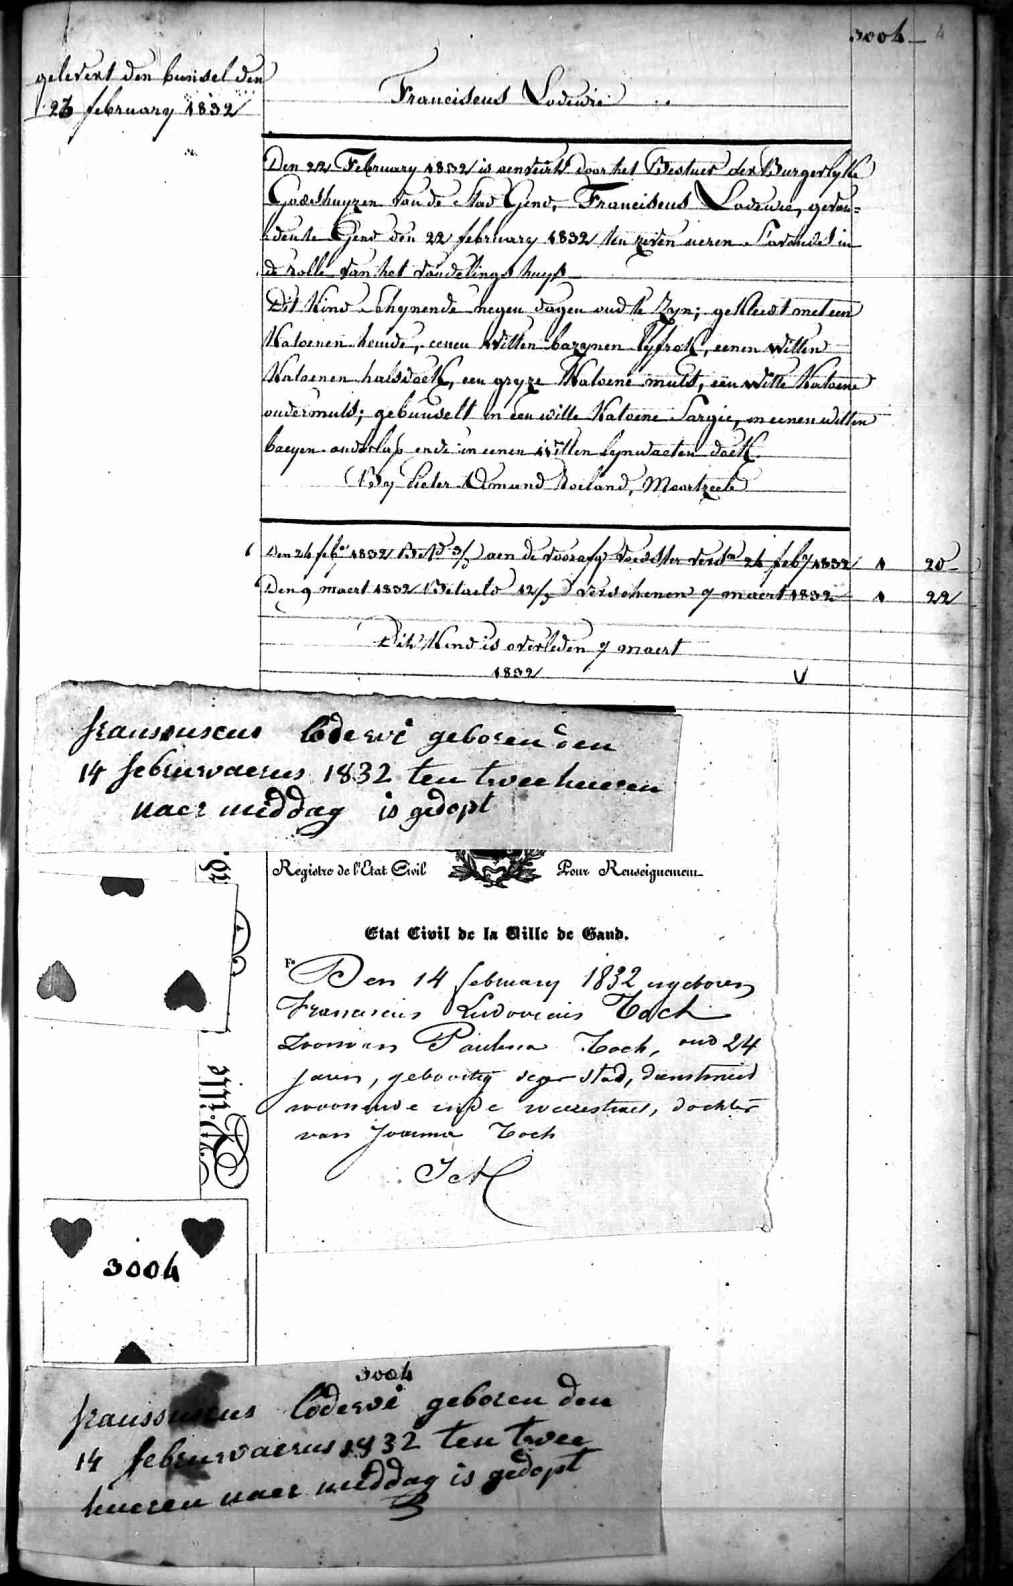 3004
4
gelevert den bunsel den
23 february 1832
Franciscus Lodewie
Den 22 February 1832 is aenveirt door het Bestuer der Burgerlyke
Godshuyzen van de Stad Gend, Franciscus Lodewie, gevon=
den te Gend den 22 february 1832 ten zeven ueren s'avonds in
de rolle van het vondelings huys
Dit Kind schynende negen dagen oud te zyn; gekleed met een
Katoenen hemde, eenen witten bazynen lyfrok, eenen witten
Katoenen halsdoek, een gryze Katoene muts, een witte Katoene
ondermuts; gebunselt in een witte Katoene Sargie, in eenen witten
baeyen onderlap ende in eenen witten lynwaeten doek
By Pieter Roeland, Moortzeele
Den 24 feby 1832 Bet 3/ aen de voorsz voedster versn 24 feby 1832 1 20
Den 9 maert 1832 Betaeld 12/ verschenen 7 maert 1832 1 22
Dit Kind is overleden 7 maert
1832
fraussuscus lodewi geboren den
14 februwaerus 1832 ten twee hueren
naer middag is gedopt
Registre de l'Etat Civil Pour Renseignement
Etat Civil de la Ville de Gand.
Den 14 february 1832 is geboren
Franciscus Ludovicus Toch
Zoon van Paulina Toch, oud 24
jaren, geboortig dezer stad, dienstmeid
woonende in de straet, dochter
van Joanna Toch
Ville
3004
3004
fraussuscus lodewi geboren den
14 februwaerus 1832 ten twee
hueren naer middag is gedopt